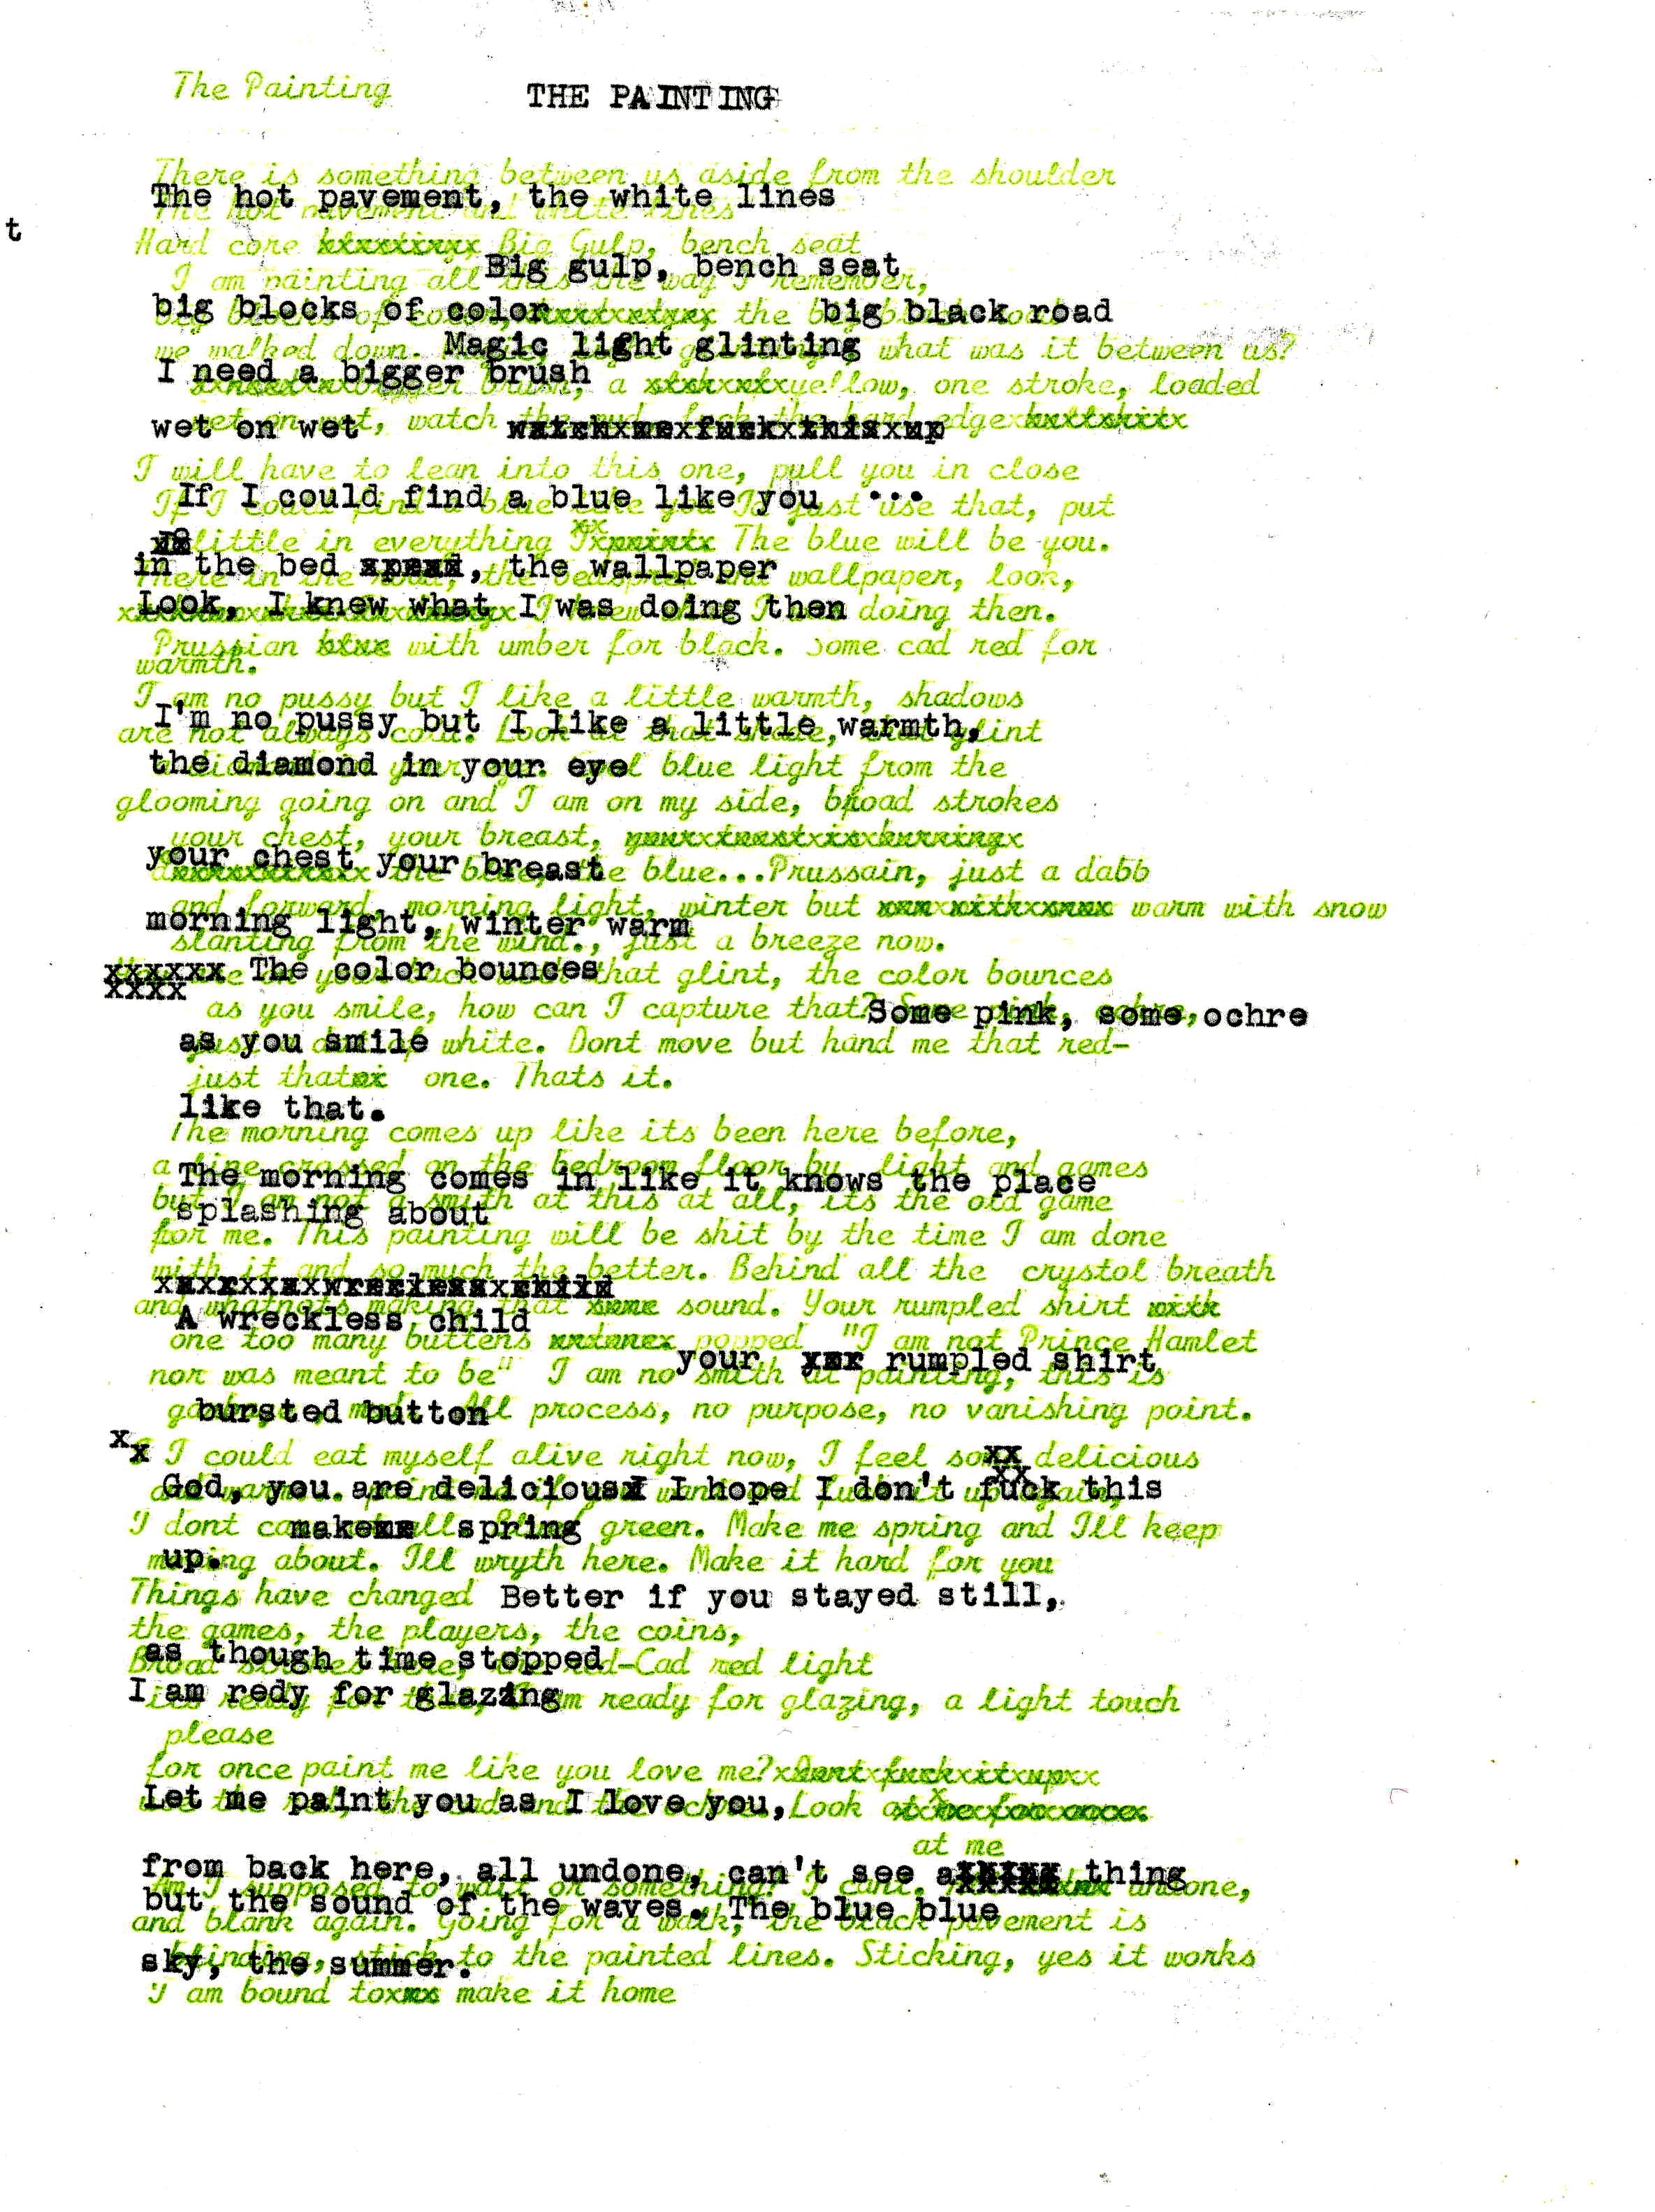 The Painting THE PAINTING
There is something between us aside from the shoulder
The hot pavement, the white lines
The hot pavement and white lines
t
Hard core Big Gulp, bench seat
Big gulp, bench seat
I am painting all this the way I remember,
big blocks of color big black road
big blocks of the
we walked down. Magic light glinting what was it between us?
I need a bigger brush
brush, a yellow, one stroke, loaded
wet on wet, watch the hard edge
wet on wet watch me fuck this up
I will have to lean into this one, pull you in close
If I could find a blue like you ...
If I could find a blue like you I'd just use that, put
little in everything The blue will be you.
in the bed , the wallpaper
There in the wallpaper, look,
Look, I knew what I was doing then
doing then.
Prussian with umber for black. Some cad red for
warmth.
I am no pussy but I like a little warmth, shadows
I'm no pussy but I like a little warmth,
are not always cold. Look at that glint
the diamond in your eye
blue light from the
glooming going on and I am on my side, broad strokes
your chest, your breast,
your chest your breast
the blue...Prussain, just a dabb
and forward, morning light, winter but warm with snow
morning light, winter warm
slanting from the wind., just a breeze now.
xxxxxx The color bounces
that glint, the color bounces
xxxx
as you smile, how can I capture that?
Some pink, some ochre
as you smile
white. Dont move but hand me that red-
just that one. Thats it.
like that.
The morning comes up like its been here before,
a line crossed on the bedroom floor by light and games
The morning comes in like it knows the place
but I am not a smith at this at all, its the old game
splashing about
for me. This painting will be shit by the time I am done
with it and so much the better. Behind all the crystol breath
wreckless child
and whatnots making that sound. Your rumpled shirt
A wreckless child
one too many buttens popped "I am not Prince Hamlet
your rumpled shirt
nor was meant to be" I am no smith at painting, this is
bursted button
All process, no purpose, no vanishing point.
xx
I could eat myself alive right now, I feel so delicious
xx
God, you are delicious I hope I don't fuck this
I dont green. Make me spring and Ill keep
make spring
up.
about. Ill wryth here. Make it hard for you
Things have changed Better if you stayed still,
the games, the players, the coins,
as though time stopped
Broad -Cad red light
I am redy for glazing
I am ready for glazing, a light touch
please
for once paint me like you love me?
Let me paint you as I love you,
Look
at me
from back here, all undone, can't see a thing
Am I supposed to wait or something? I cant. undone,
but the sound of the waves. The blue blue
and blank again. Going for a walk, the black pavement is
sky, the summer.
blinding, stick to the painted lines. Sticking, yes it works
I am bound to make it home